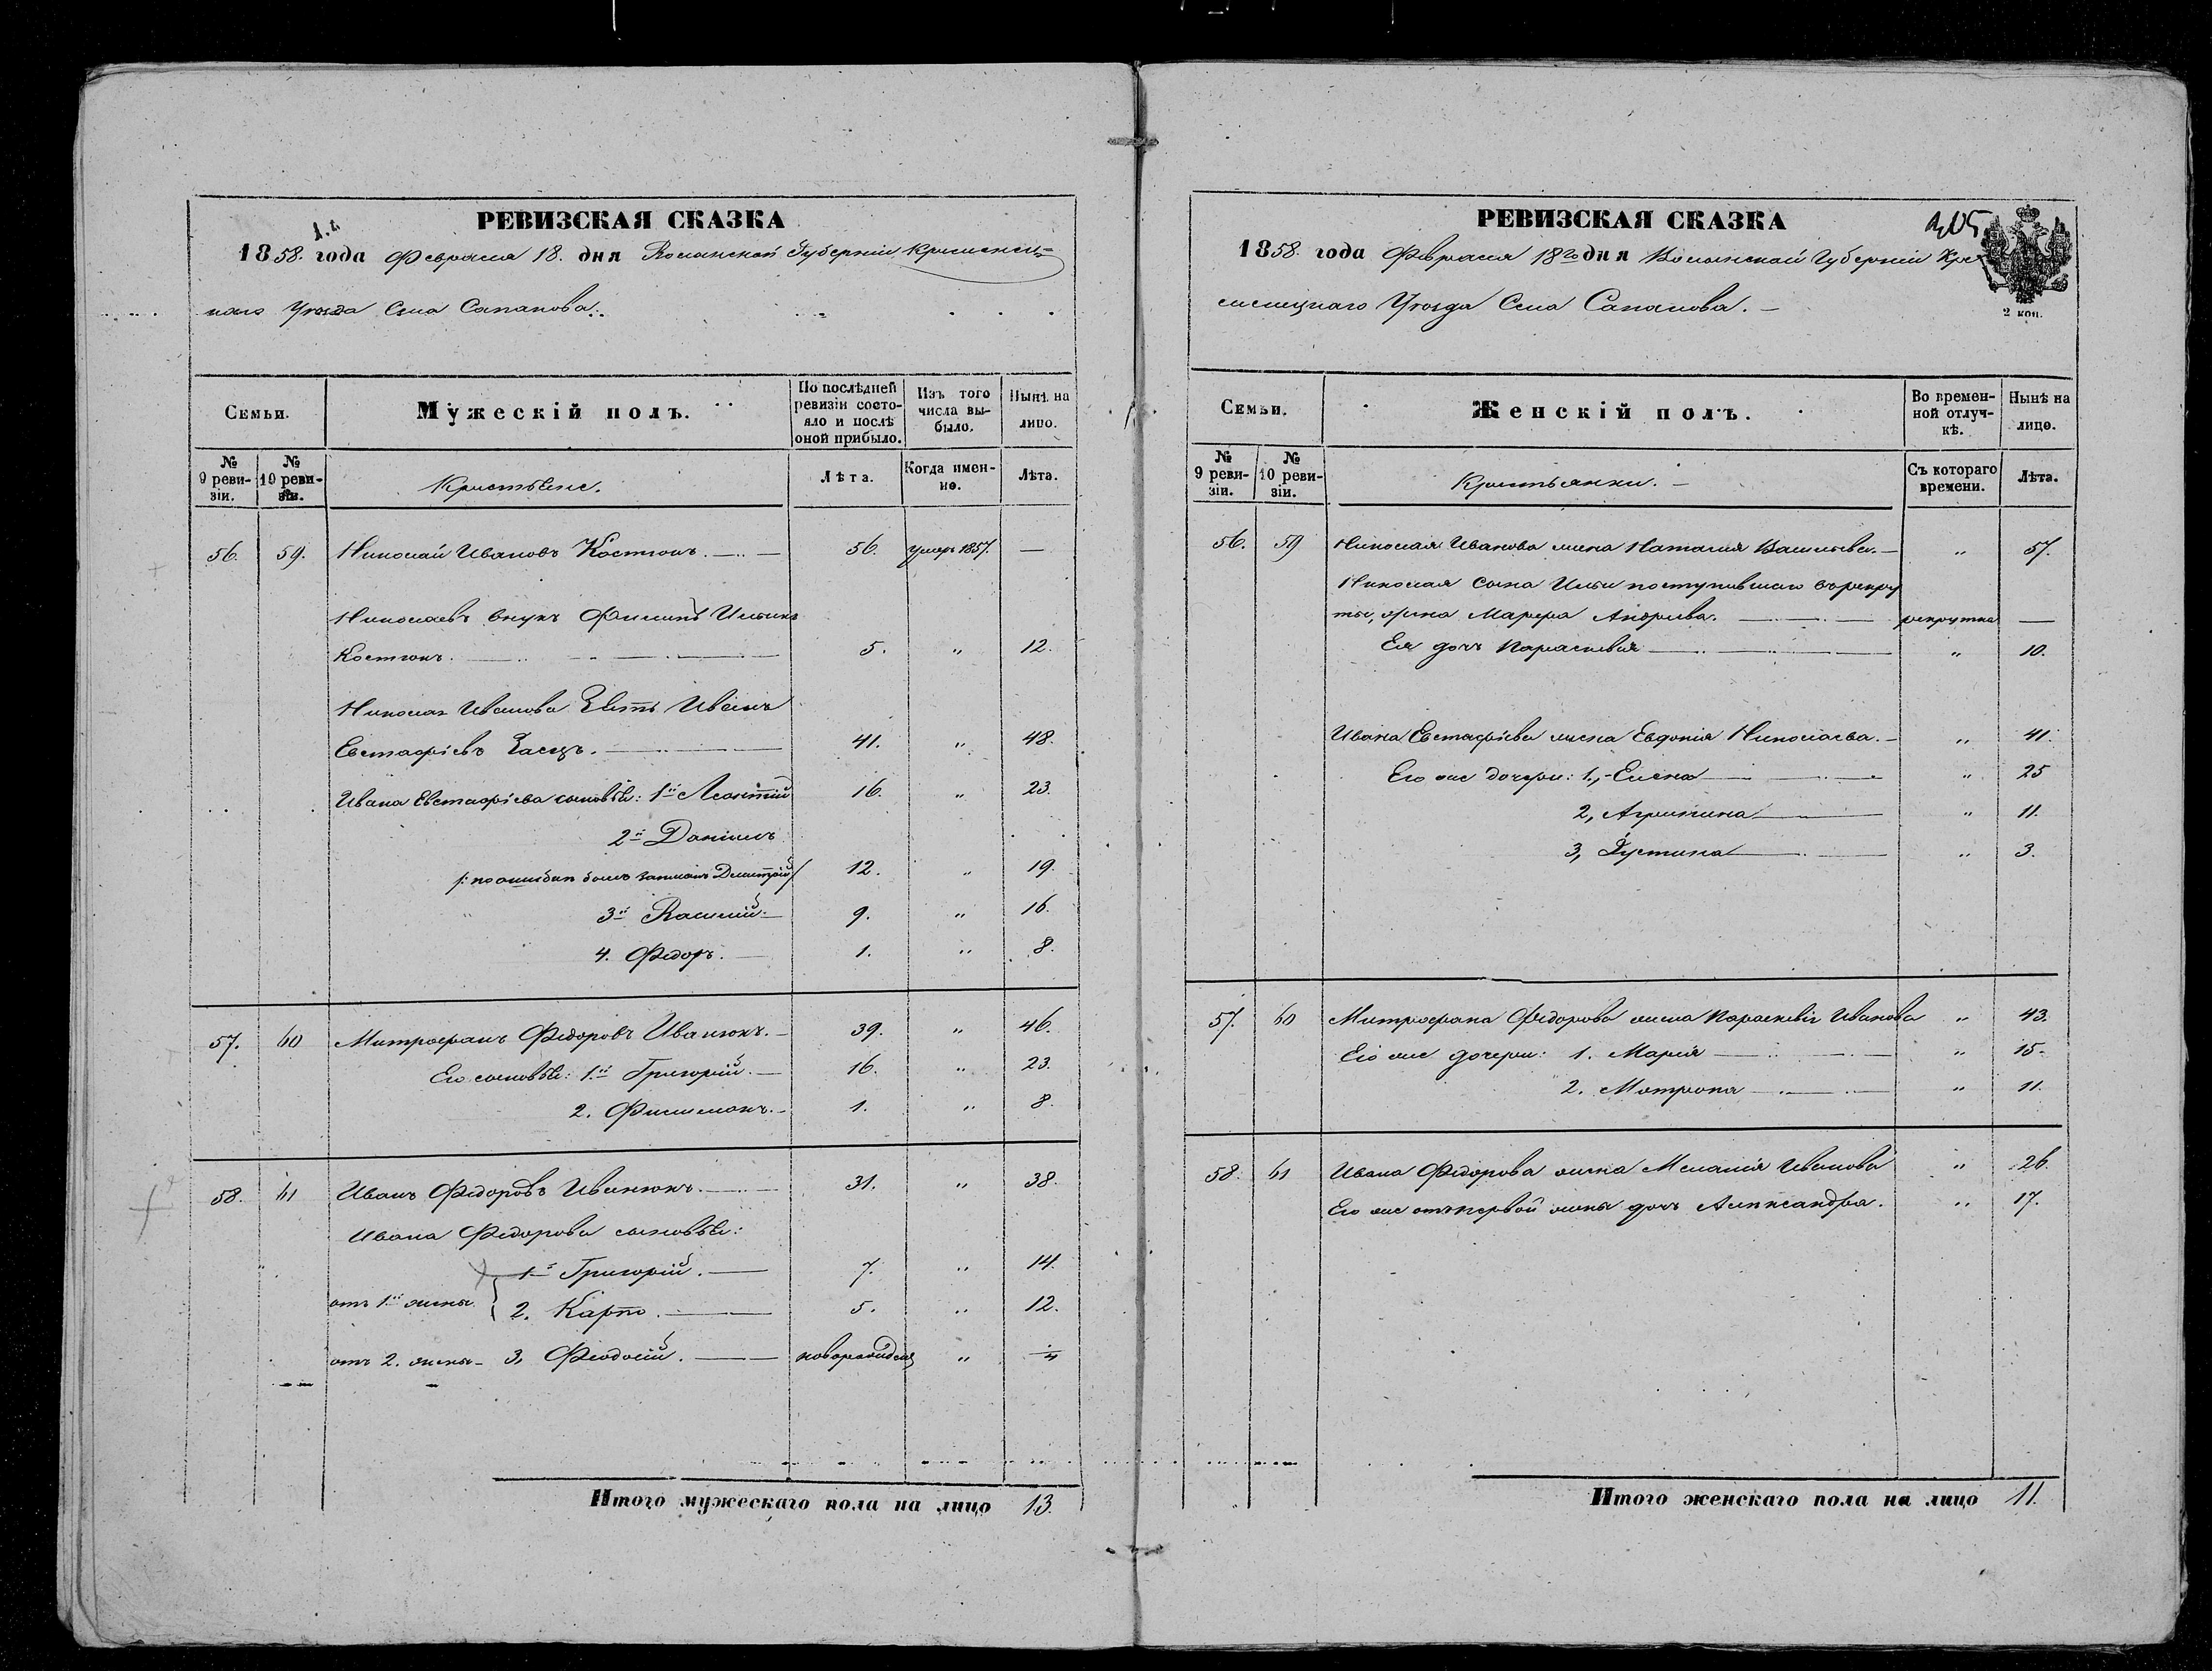 РЕВИЗСКАЯ СКАЗКА
1858. года Февраля 18. дня Волынской Губерніи Кременец-
каго Уезда Села Сапанова.
Семьи.
Мужескій полъ.
По послѣдней ревизіи состояло и послѣ оной прибыло.
Изъ того числа выбыло.
Нынѣ на лицо.
№ 9 ревизіи.
№ 10 ревизіи.
Крестьяне.
Лѣта.
Когда именно.
Лѣта.
56. 59. Николай Ивановъ Костюкъ. 56. умеръ 1857. —
Николаевъ внукъ Филипъ Ильинъ
Костюкъ. 5. " 12.
Николая Иванова Зять Иванъ
Евстафіевъ Заецъ. 41. " 48.
Ивана Евстафіева сыновья: 1й Леонтій 16. " 23.
2й Даніилъ
/: по ошибкѣ былъ записанъ Дмитрій / 12. " 19.
3й Василій. 9. " 16.
4. Федоръ. 1. " 8.
57. 60 Митрофанъ Федоровъ Иванюкъ. 39. " 46.
Его сыновья: 1й Григорій. 16. " 23.
2. Филимонъ. 1. " 8.
58. 61 Иванъ Федоровъ Иванюкъ. 31. " 38.
Ивана Федорова сыновья:
1й Григорій. 7. " 14.
отъ 1й жены 2. Карпо. 5. " 12.
отъ 2. жены 3, Феодосій. "
Итого мужескаго пола на лицо 13.
РЕВИЗСКАЯ СКАЗКА
105
1858. года Февраля 18го дня Волынской Губерніи Кре
менецкаго Уезда Села Сапанова.
2 коп.
Семьи.
Женскій полъ.
Во временной отлучкѣ.
Нынѣ на лицо.
№ 9 ревизіи.
№ 10 ревизіи.
Крестьянки.
Съ котораго времени.
Лѣта.
56. 59 Николая Иванова жена Наталія Васильева. " 57.
Николая сына Ильи поступившаго въ рекру
ты, жена Марфа Андреева. рекрутка —
Ея дочь Параскевія " 10.
Ивана Евстафіева жена Евдокія Николаева. " 41.
Его же дочери: 1, Елена " 25
2, Агрипина " 11.
3, Іустина " 3.
57. 60 Митрофана Федорова жена Параскевія Иванова " 43.
Его же дочери: 1. Марія " 15.
2. Матрона " 11.
58. 61 Ивана Федорова жена Меланія Иванова " 26.
Его же отъ первой жены дочь Александра. " 17.
Итого женскаго пола на лицо 11.